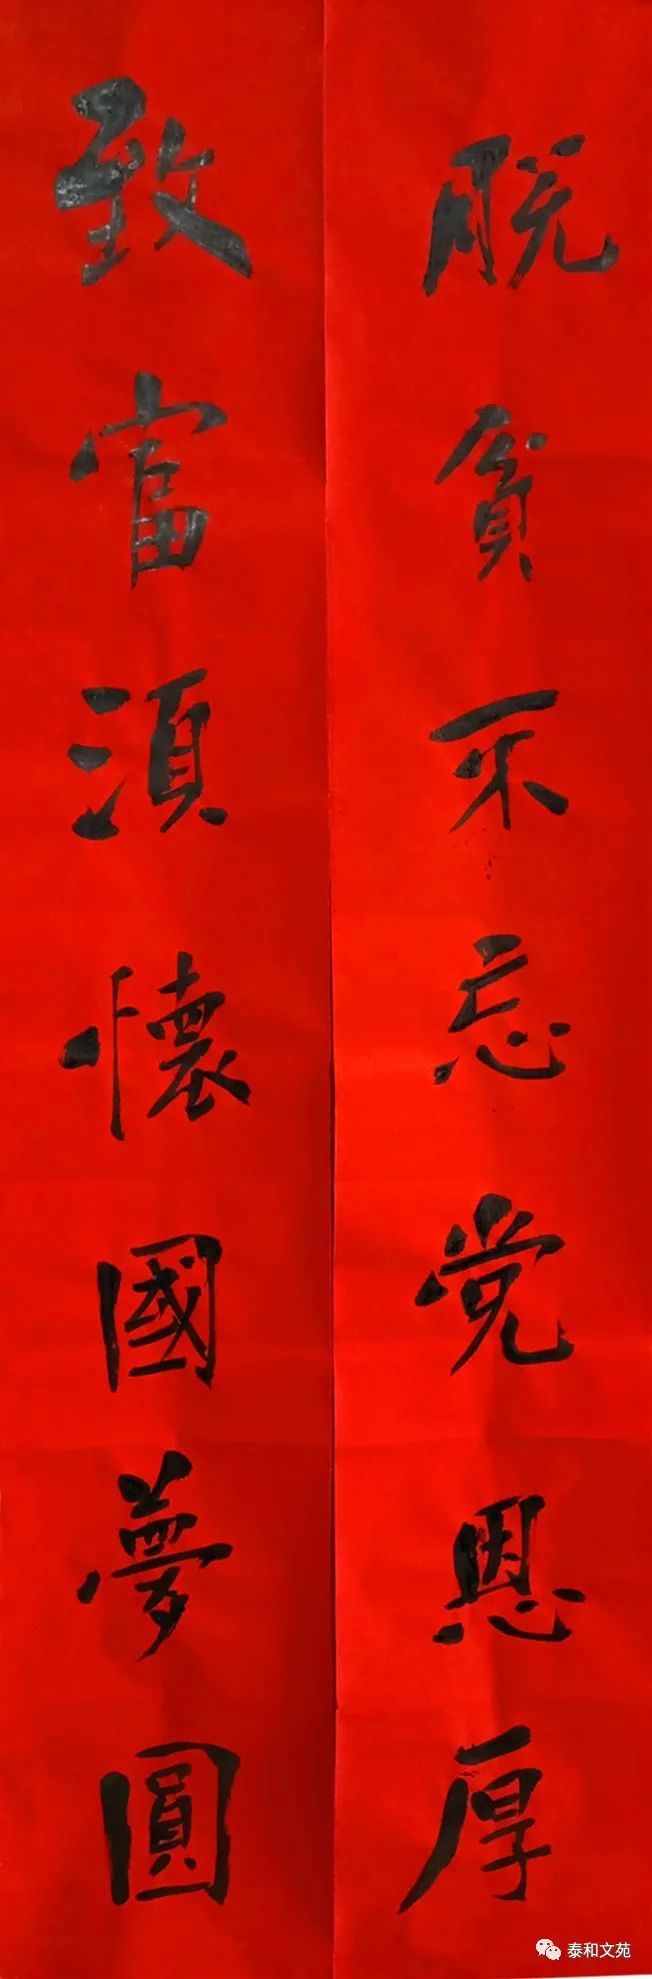 脱貧不忘党恩厚
致富須懷國夢圓
泰和文苑